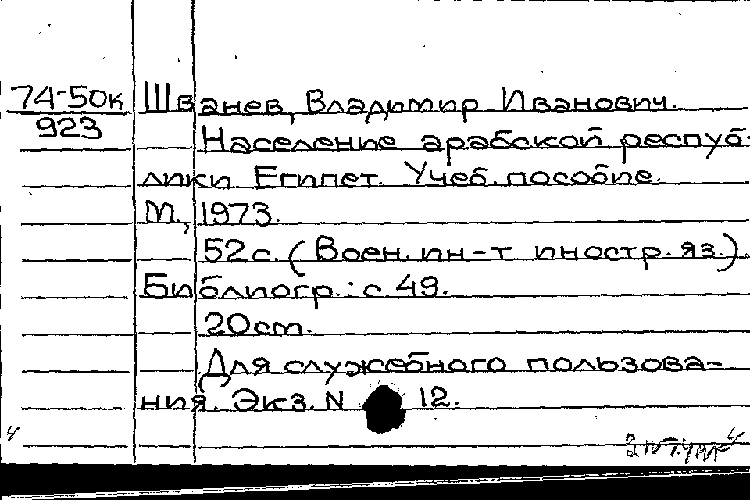 74-50к Шванев, Владимир Иванович.
923 Население арабской респуб-
лики Египет. Учеб. пособие.
М., 1973.
52 с. (Воен. ин-т иностр. яз.).
Библиогр.: с. 49.
20 см.
Для служебного пользова-
ния. Экз. N 12.
ч